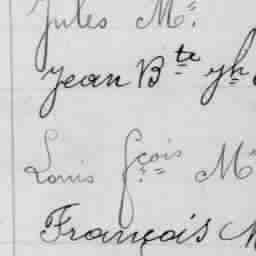 Jules M.
Jean Bte Jh
Louis fçois M
François M